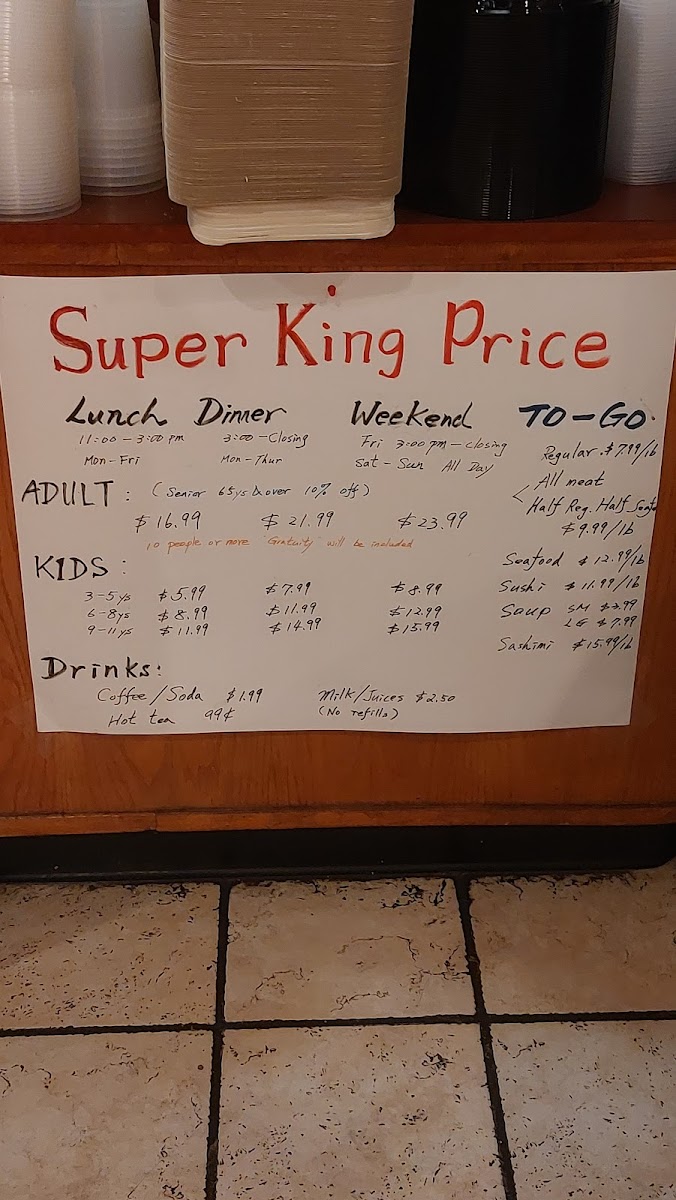 Super King Price
Lunch Dinner Weekend TO-GO
11:00 - 3:00 pm 3:00 - Closing Fri 3:00 pm - closing
Mon - Fri Mon - Thur Sat - Sun All Day
Regular $7.99/lb
All meat
Half Reg. Half Seafo
$9.99/lb
ADULT : ( Senior 65ys & over 10% off )
$16.99 $21.99 $23.99
10 people or more "Gratuity" will be included
KIDS :
3-5ys $5.99 $7.99 $8.99
6-8ys $8.99 $11.99 $12.99
9-11ys $11.99 $14.99 $15.99
Seafood $12.99/lb
Sushi $11.99/lb
Soup SM $3.99
LG $7.99
Sashimi $15.99/lb
Drinks:
Coffee/Soda $1.99 Milk/Juices $2.50
Hot tea 99¢ (No refills)